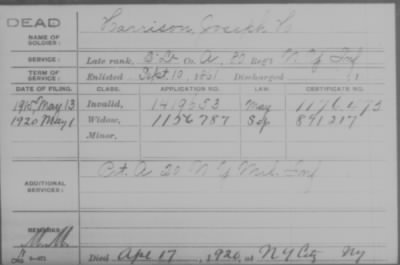 DEAD
NAME OF SOLDIER: Harrison, Joseph H
SERVICE: Late rank, 2" Lt Co. A, 80 Reg't N Y Inf
TERM OF SERVICE: Enlisted Sept 10, 1861 Discharged , 1
DATE OF FILING. CLASS. APPLICATION NO. LAW. CERTIFICATE NO.
1915 May 13 Invalid, 1419653 May
1920 May 1 Widow, 1156787 Sep 891217
Minor,
ADDITIONAL SERVICES: Pvt. A 20 N Y Mil. Inf
REMARKS:
Died Apr 17, 1920, at N Y City NY